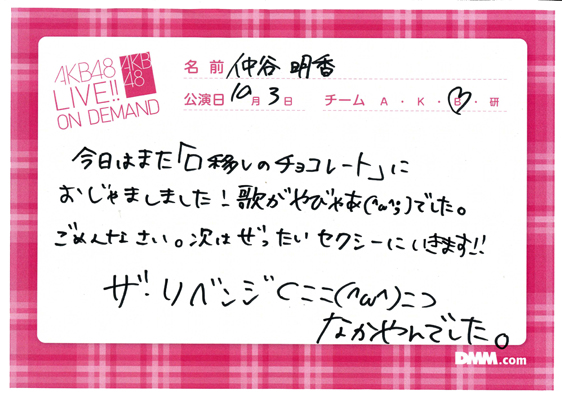 AKB48
LIVE!!
ON DEMAND
AKB
48
名前 仲谷 明香
公演日 10月3日 チーム A・K・B・研
今日はまた「口移しのチョコレート」に
おじゃましました!歌がやびゃあ(^ω^;)でした。
ごめんなさい。次はぜったいセクシーにいきます!!
ザ・リベンジ⊂ニニ(^ω^)ニ⊃
なかやんでした。
DMM.com